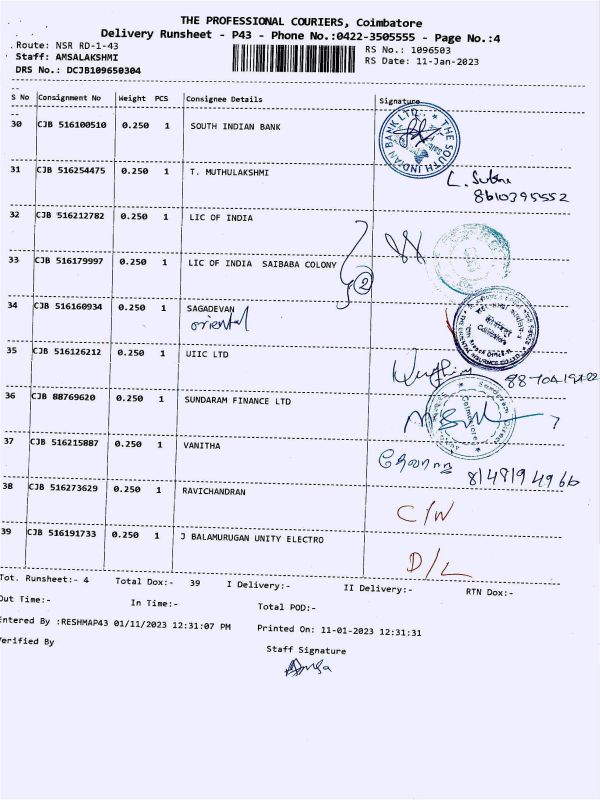 THE PROFESSIONAL COURIERS, Coimbatore
Delivery Runsheet - P43 - Phone No.:0422-3505555 - Page No.:4
Route: NSR RD-1-43 RS No.: 1096503
Staff: AMSALAKSHMI RS Date: 11-Jan-2023
DRS No.: DCJB109650304
S No Consignment No Weight PCS Consignee Details Signature
30 CJB 516100510 0.250 1 SOUTH INDIAN BANK
THE SOUTH INDIAN BANK LTD.
31 CJB 516254475 0.250 1 T. MUTHULAKSHMI
8610395552
32 CJB 516212782 0.250 1 LIC OF INDIA
33 CJB 516179997 0.250 1 LIC OF INDIA SAIBABA COLONY
2
34 CJB 516160934 0.250 1 SAGADEVAN
oriental
35 CJB 516126212 0.250 1 UIIC LTD
36 CJB 88769620 0.250 1 SUNDARAM FINANCE LTD
Coimbatore
37 CJB 516215887 0.250 1 VANITHA
8148194966
38 CJB 516273629 0.250 1 RAVICHANDRAN
C/W
39 CJB 516191733 0.250 1 J BALAMURUGAN UNITY ELECTRO
D/L
Tot. Runsheet:- 4 Total Dox:- 39 I Delivery:- II Delivery:- RTN Dox:-
Out Time:- In Time:- Total POD:-
Entered By :RESHMAP43 01/11/2023 12:31:07 PM Printed On: 11-01-2023 12:31:31
Verified By Staff Signature